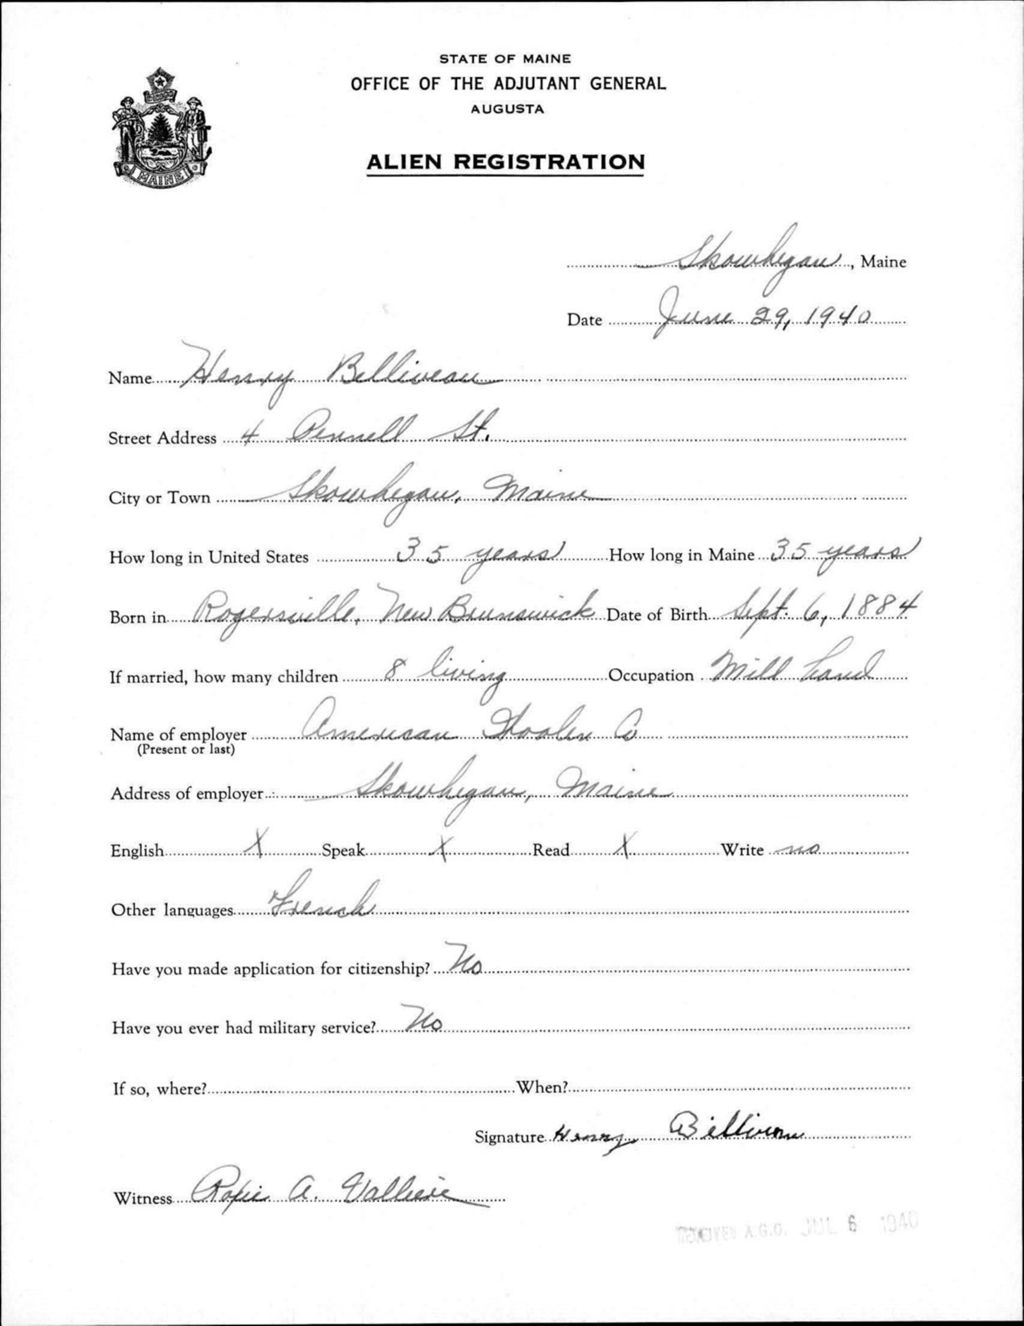 STATE OF MAINE
OFFICE OF THE ADJUTANT GENERAL
AUGUSTA
MAINE
ALIEN REGISTRATION
Skowhegan, Maine
Date June 29, 1940
Name Henry Belliveau
Street Address 4 Pennell St.
City or Town Skowhegan, Maine
How long in United States 35 years How long in Maine 35 years
Born in Rogersville, New Brunswick Date of Birth Sept. 6, 1884
If married, how many children 8 living Occupation Mill hand
Name of employer American Woolen Co
(Present or last)
Address of employer Skowhegan, Maine
English X Speak X Read X Write no
Other languages French
Have you made application for citizenship? No
Have you ever had military service? No
If so, where? When?
Signature Henry
Witness A. Valliere
A.G.O. JUL 6 1940